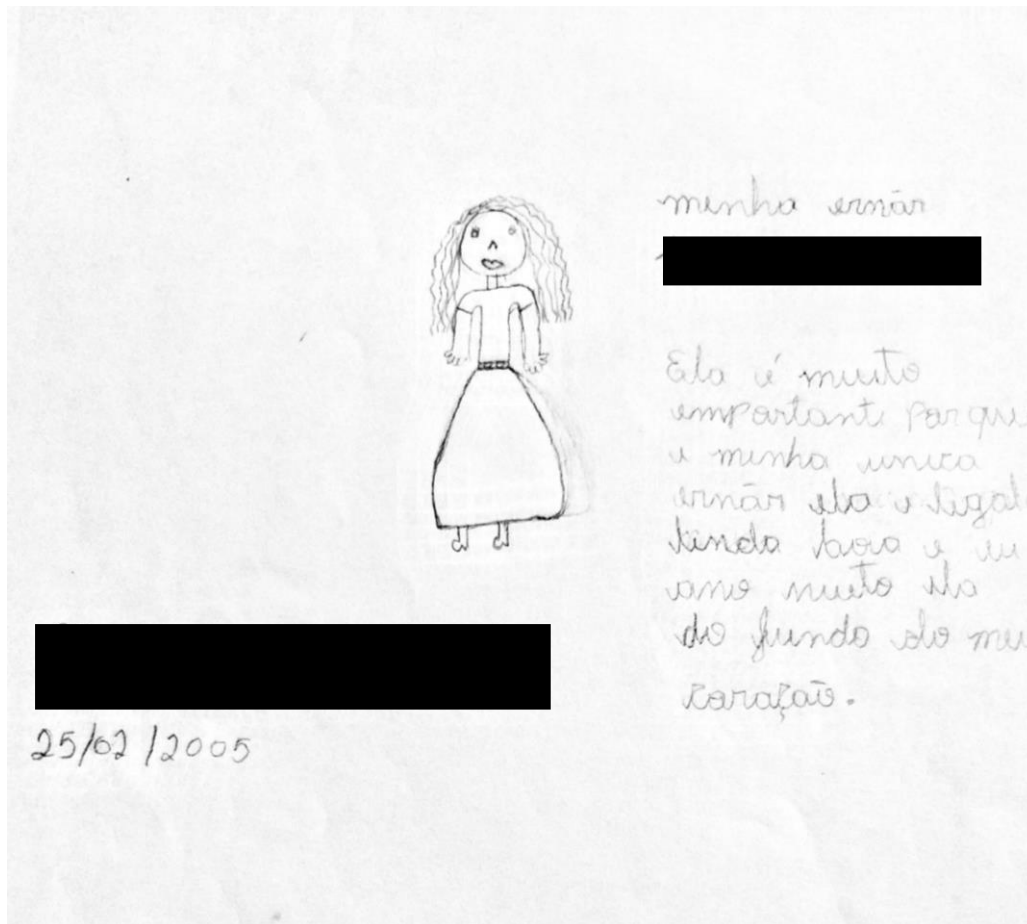 minha ermãr
Ela é muito
emportante porque
e minha unica
ermãr ela e legal
linda boa e eu
amo muito ela
do fundo do meu
coração.
25/02/2005